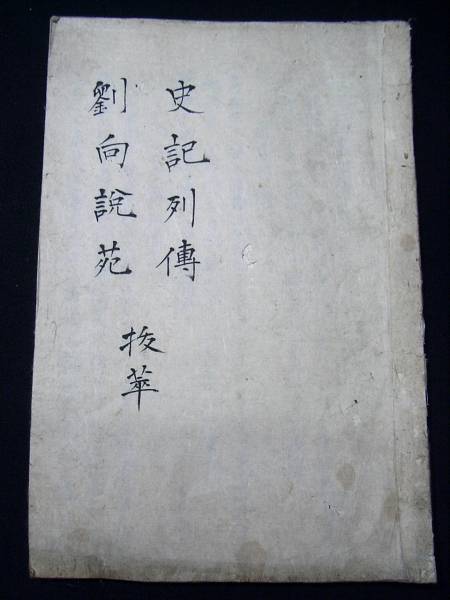 史記列傳
劉向說苑
拔萃